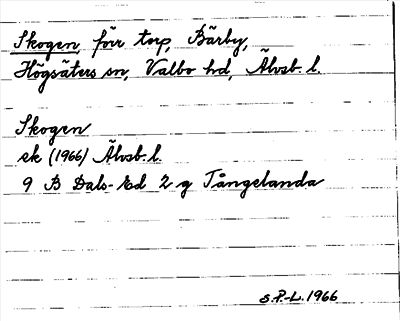 Skogen, förr torp, Bärby,
Högsäters sn, Valbo hd, Älvsb. l.
Skogen
ek (1966) Älvsb. l.
9 B Dals-Ed 2 g Tångelanda
S.P.-L. 1966